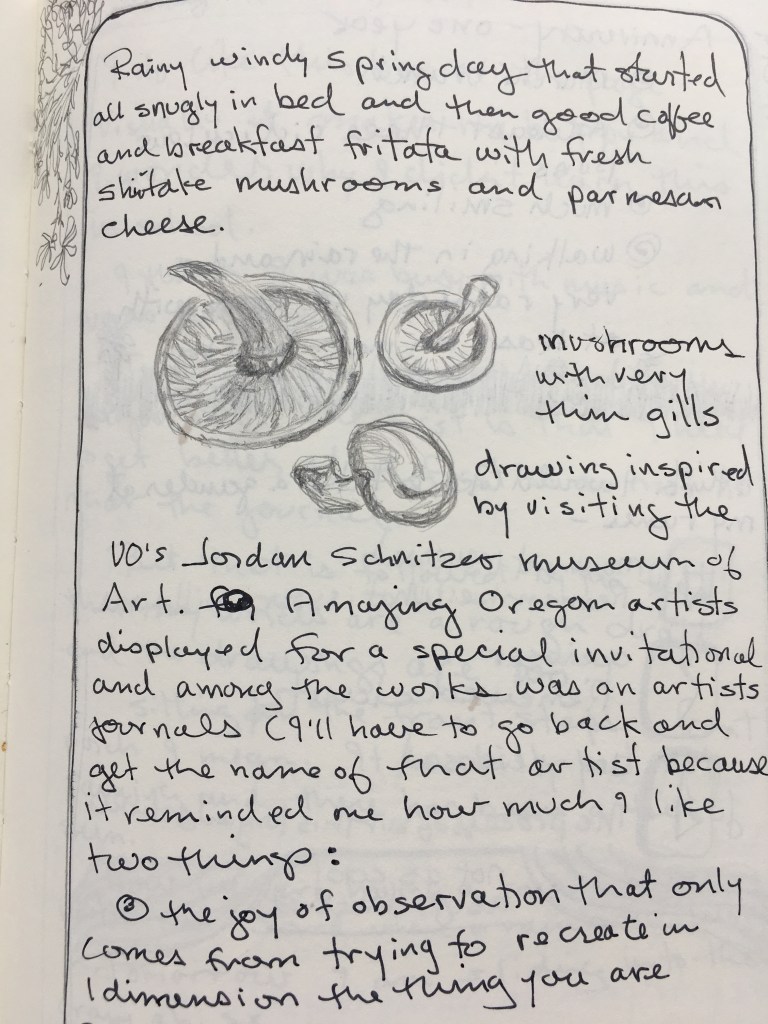 Rainy windy spring day that started
all snugly in bed and then good coffee
and breakfast fritata with fresh
shiitake mushrooms and parmesan
cheese.
mushrooms
with very
thin gills
drawing inspired
by visiting the
UO's Jordan Schnitzer museum of
Art. Amazing Oregon artists
displayed for a special invitational
and among the works was an artists
journals (I'll have to go back and
get the name of that artist because
it reminded me how much I like
two things:
the joy of observation that only
comes from trying to recreate in
1 dimension the thing you are